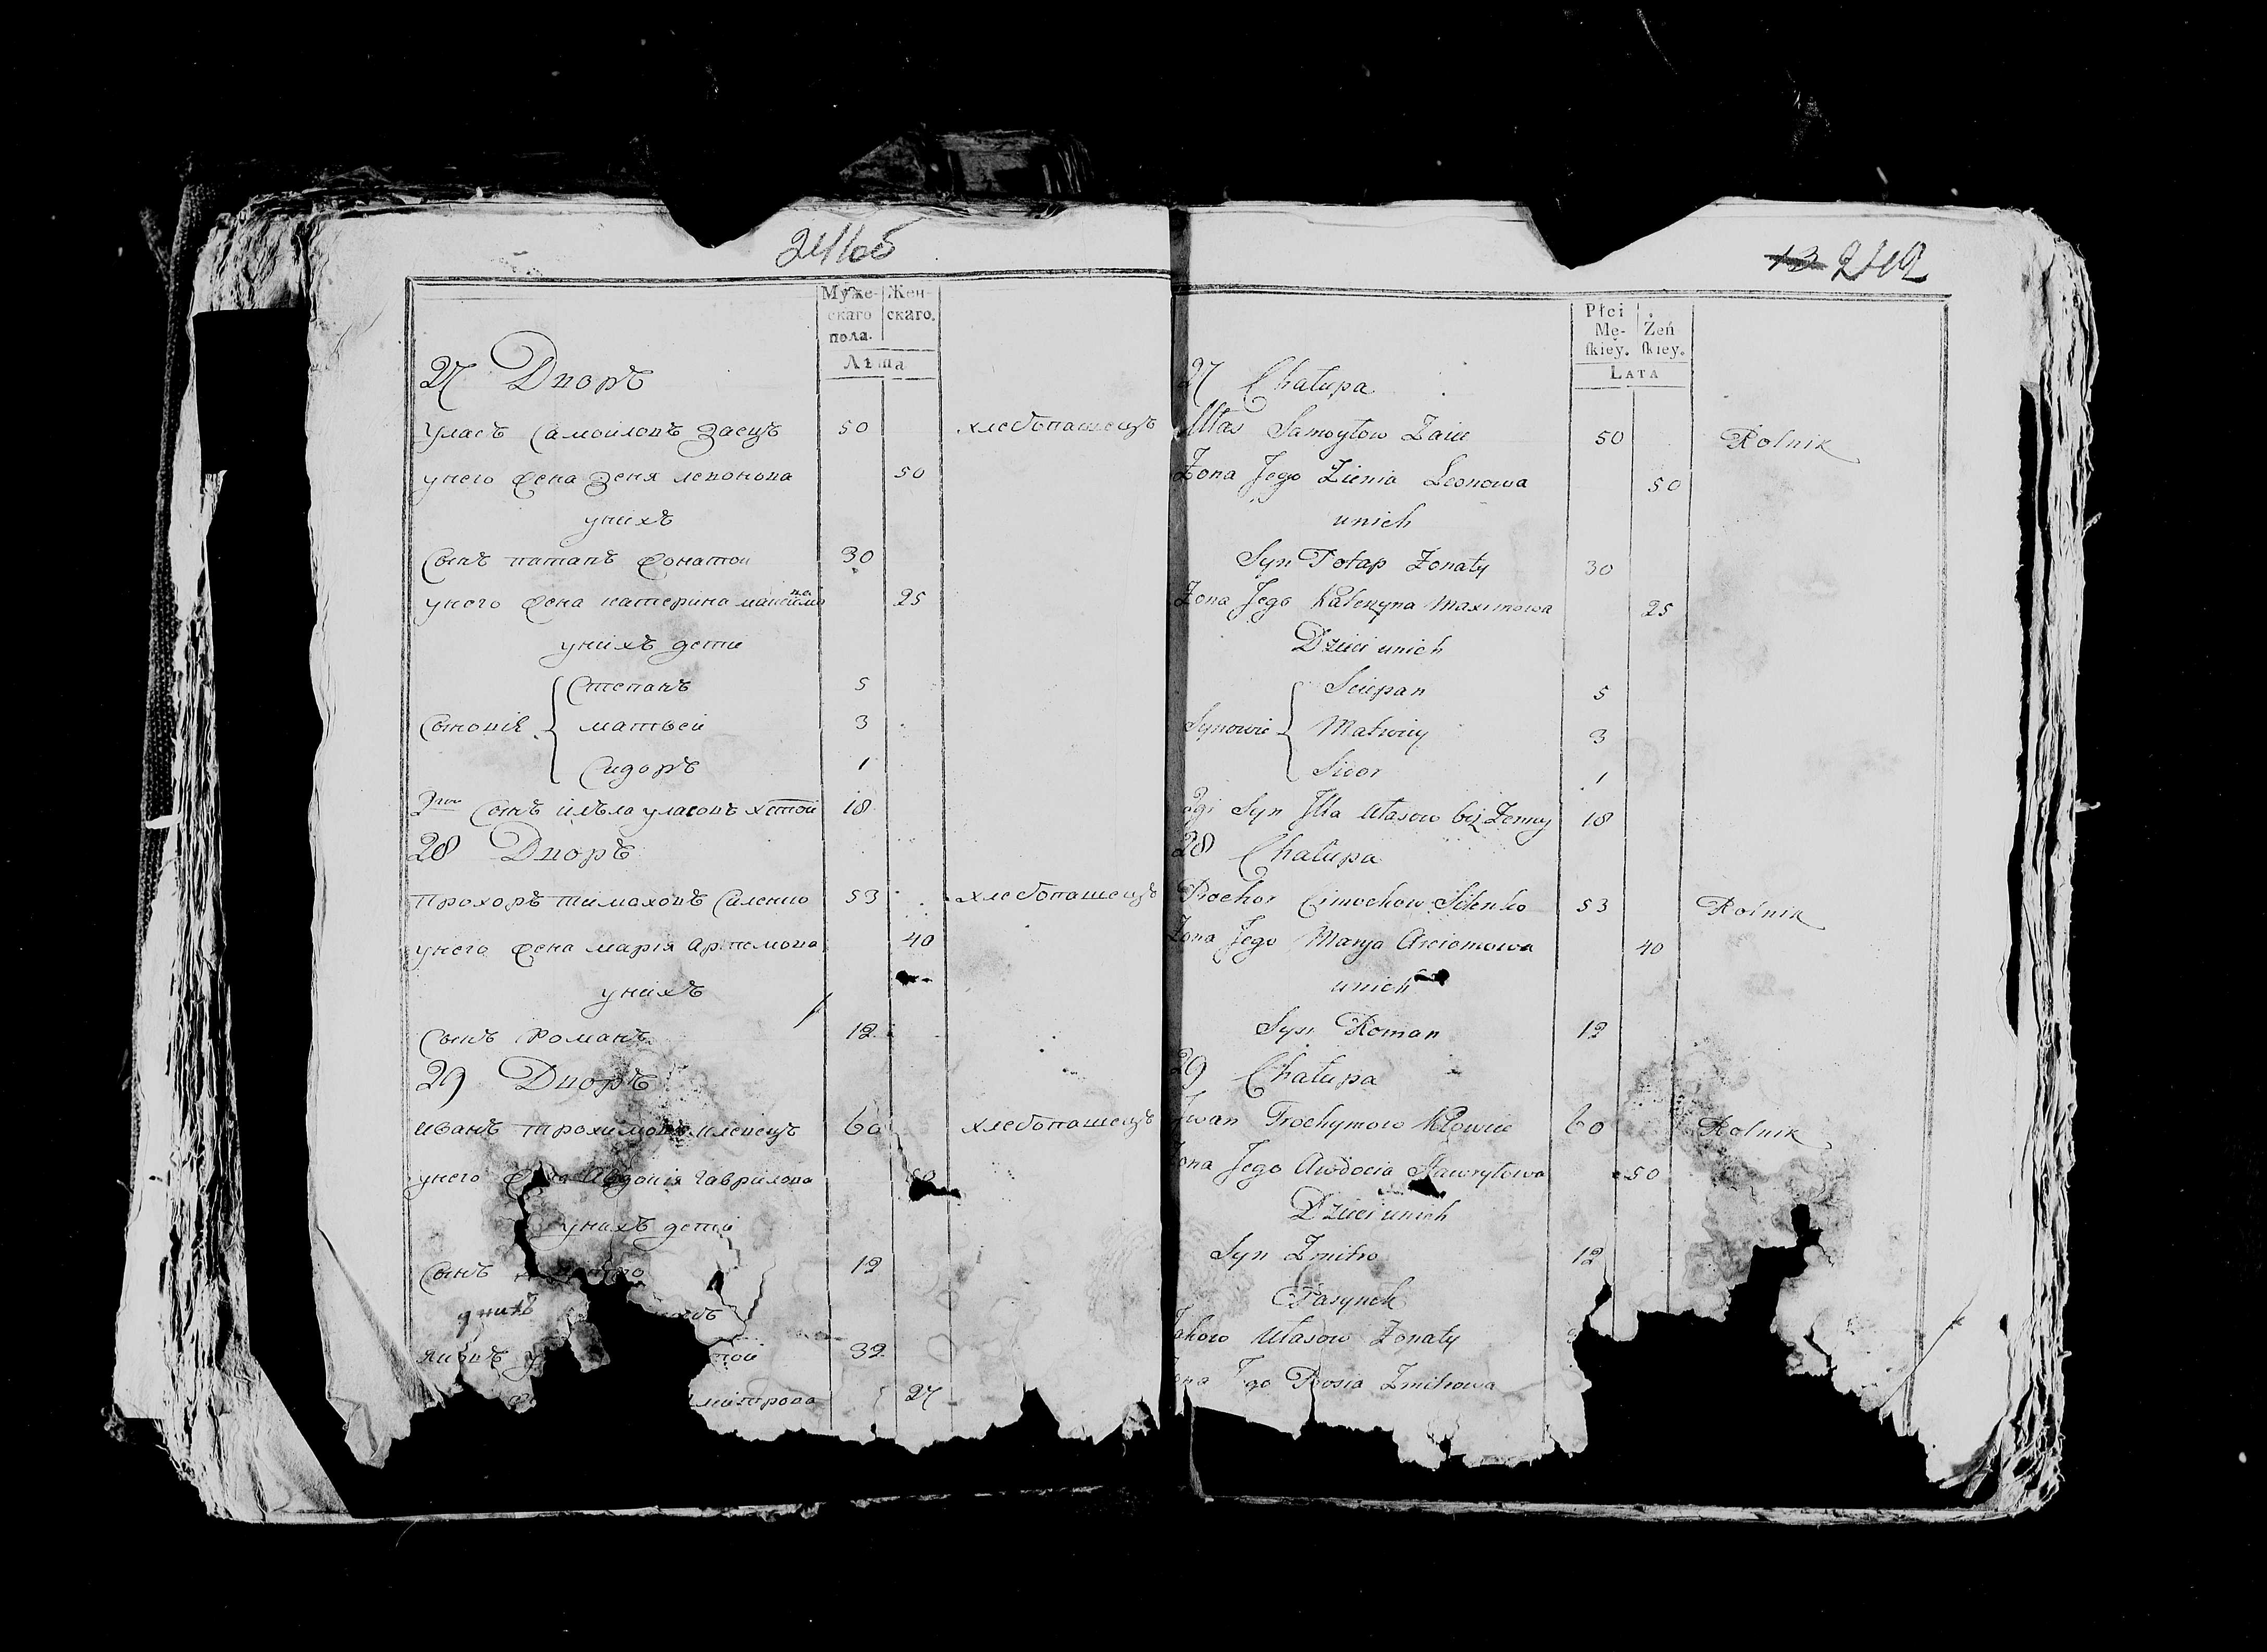 241об
Муже-
скаго
пола.
Жен-
скаго.
Лѣта
27 Дворъ
Уласъ Самойловъ Заецъ 50 хлебопашецъ
унего жена Зеня левонова 50
унихъ
Сынъ патапъ жонатой 30
унего жена катерина максимова 25
унихъ дети
Сыновія
Степанъ 5
матвей 3
Сидоръ 1
2гой Сынъ илья уласовъ хстой 18
28 Дворъ
прохоръ тимоховъ Силенко 53 хлебопашецъ
унего жена марія Артемова 40
унихъ
Сынъ Романъ 12
29 Дворъ
иванъ трохимовъ 60 хлебопашецъ
унего жена Авдотія Гаврилова
унихъ дети
Сынъ 12
32
митрова 27
13 242
Płci
Mę-
skiey.
Żeń
skiey.
LATA
27 Chałupa
Ułas Samoyłow Zaiec 50 Rolnik
Żona Jego Zienia Leonowa 50
unich
Syn Potap Żonaty 30
Żona Jego Kateryna Maximowa 25
Dzieci unich
Synowie
Sciepan 5
Matwiey 3
Sidor 1
2gi Syn Illa Ułasow bez Żenny 18
28 Chałupa
Prochor Cimochow Silenko 53 Rolnik
Żona Jego Marya Arciomowa 40
unich
Syn Roman 12
29 Chałupa
Iwan Trochymow 60 Rolnik
Żona Jego Awdocia Hawryłowa 50
Dzieci unich
Syn Zmitro 12
Pasynek
Jakow Ułasow Żonaty
Żona Jego Rosia Zmitrowa